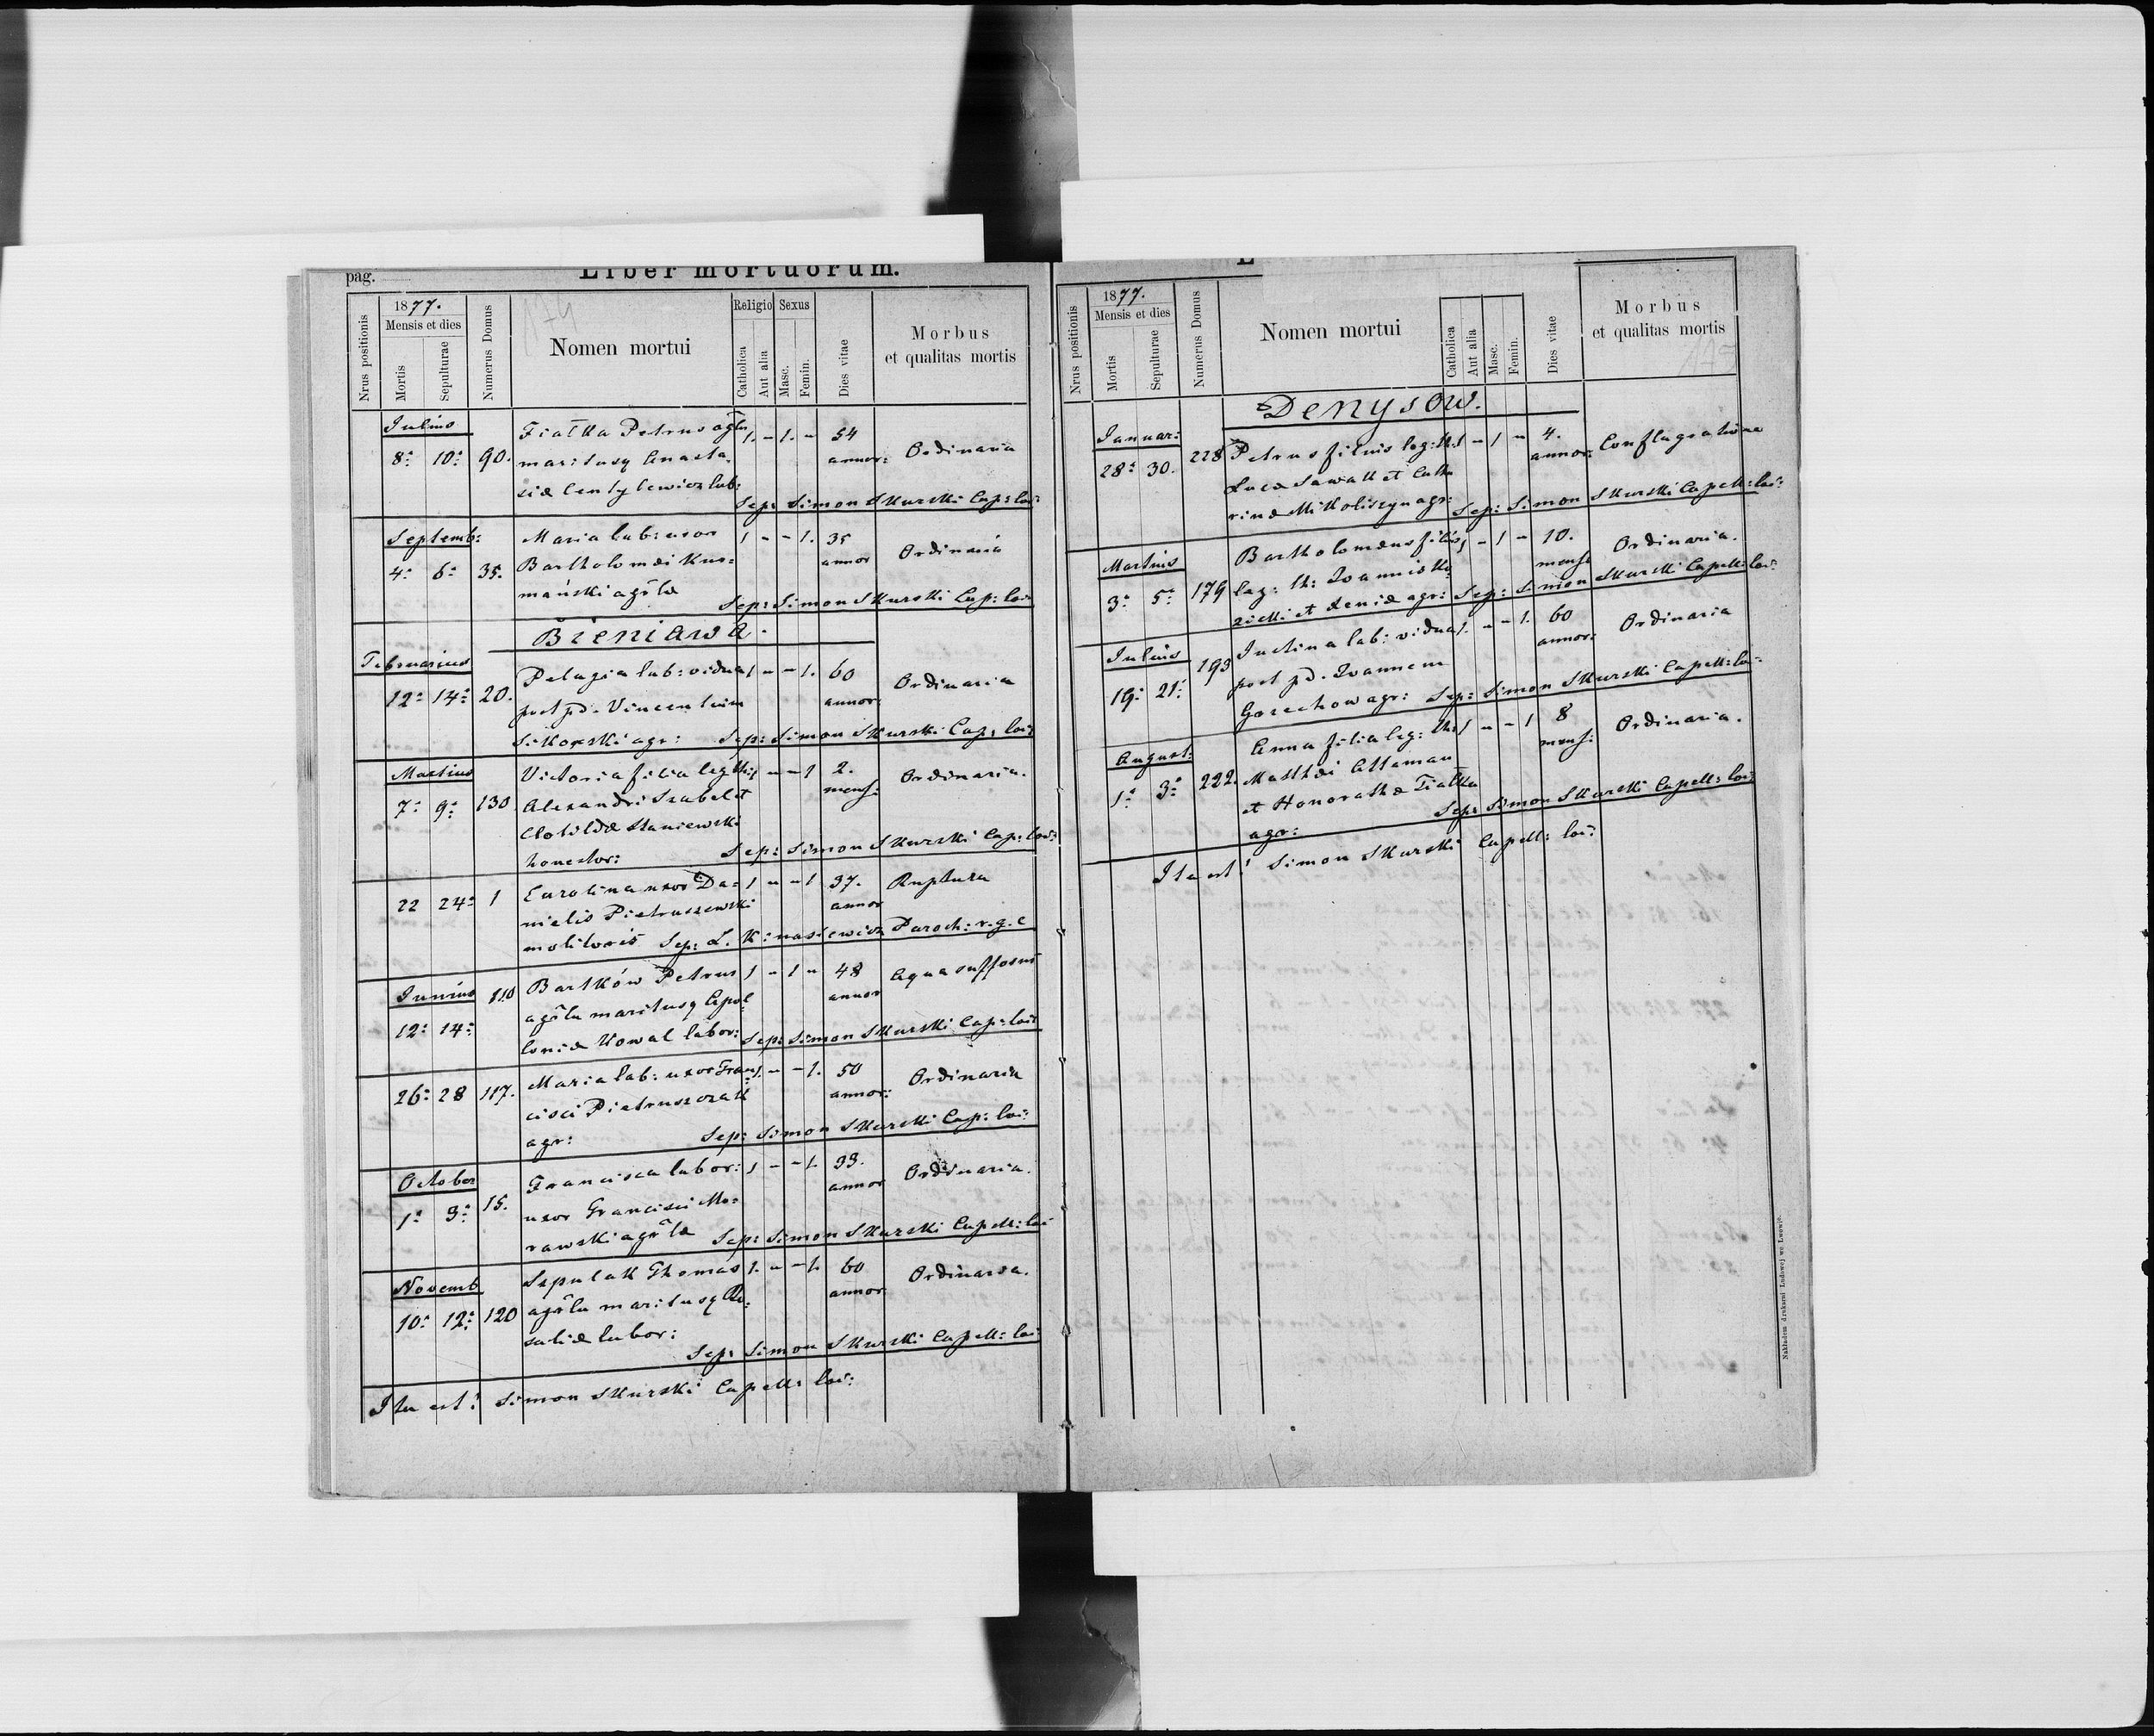 pag.
Liber mortuorum.
Nrus positionis
1877.
Mensis et dies
Mortis
Sepulturae
Numerus Domus
174
Nomen mortui
Religio
Catholica
Aut alia
Sexus
Masc.
Femin.
Dies vitae
Morbus
et qualitas mortis
Julius
8: 10: 90. Fiałka Petrus agla 1. - 1. - 54 annor: Ordinaria
maritusq Anasta.
siæ lab:
Sep: Simon Skurski Cap: loci:
Septemb:
4: 6: 35. Maria lab: uxor 1 - - 1. 35 annor Ordinaria
Bartholomæi Kur=
mański agôlæ
Sep: Simon Skurski Cap: loci
Bieniawa.
Februarius
12: 14: 20. Pelagia lab: vidua 1 - - 1. 60 annor: Ordinaria
post pd. Vincentium
Sikorski agr: Sep: Simon Skurski Cap: loci
Martius
7: 9: 130 Victoria filia leg th: 1 - - 1 2. mens: Ordinaria.
Alexandri Szabel et
Clotildæ Staniewski
honestor: Sep: Simon Skurski Cap: loci:
22 24: 1 Carolina uxor Da= 1 - - 1 37. annor Ruptura
nielis Pietruszewski
molitoris Sep: L. Paroch: r. g. c
Junius
12: 14: 110 Bartków Petrus 1 - 1 - 48 annor Aqua suffosus
agôla maritusq Apol
loniæ Kowal labor: Sep: Simon Skurski Cap: loci
26: 28 117. Maria lab: uxor Fran 1. - - 1. 50 annor: Ordinaria
cisci Pietruszczak
agr: Sep: Simon Skurski Cap: loci:
October
1: 3: 15. Francisca labor: 1 - - 1. 33. annor Ordinaria.
uxor Francisci Mo=
rawski agôlæ Sep: Simon Skurski Capell: loci
Novemb
10: 12: 120 Szpulak Thomas 1. - - 1. 60 annor Ordinaria.
agôla maritusq Ro=
saliæ labor:
Sep: Simon Skurski Capell: loci:
Ita est! Simon Skurski Capell: loci:
L
Nrus positionis
1877.
Mensis et dies
Mortis
Sepulturae
Numerus Domus
Nomen mortui
Catholica
Aut alia
Masc.
Femin.
Dies vitae
Morbus
et qualitas mortis
175
Denysow.
Januar:
28: 30. 228 Petrus filius leg: th: 1 - 1 - 4. annor: Conflagratione
Lucæ Sawak et Catha
rinæ Mikoliszyn agr:
Sep: Simon Skurski Capell: loci:
Martius
3: 5: 179 Bartholomæus filius 1 - 1 - 10. mens: Ordinaria.
leg: th: Joannis
et Xeniæ agr: Sep: Simon Skurski Capell: loci:
Julius
19: 21: 193 Justina lab: vidua 1. - - 1. 60 annor: Ordinaria
post pd. Joannem
Gorechow agr: Sep: Simon Skurski Capell: loci:
August:
1: 3: 222. Anna filia leg: th: 1 - - 1 8 mens: Ordinaria.
Matthæi Attaman
et Honorathæ Fiałka
agr: Sep: Simon Skurski Capell: loci:
Ita est! Simon Skurski Capell: loci:
Nakładem drukarni Ludowej we Lwowie.